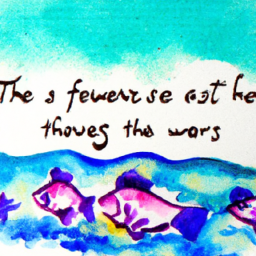 The s fewerse cat he
thoves the wars